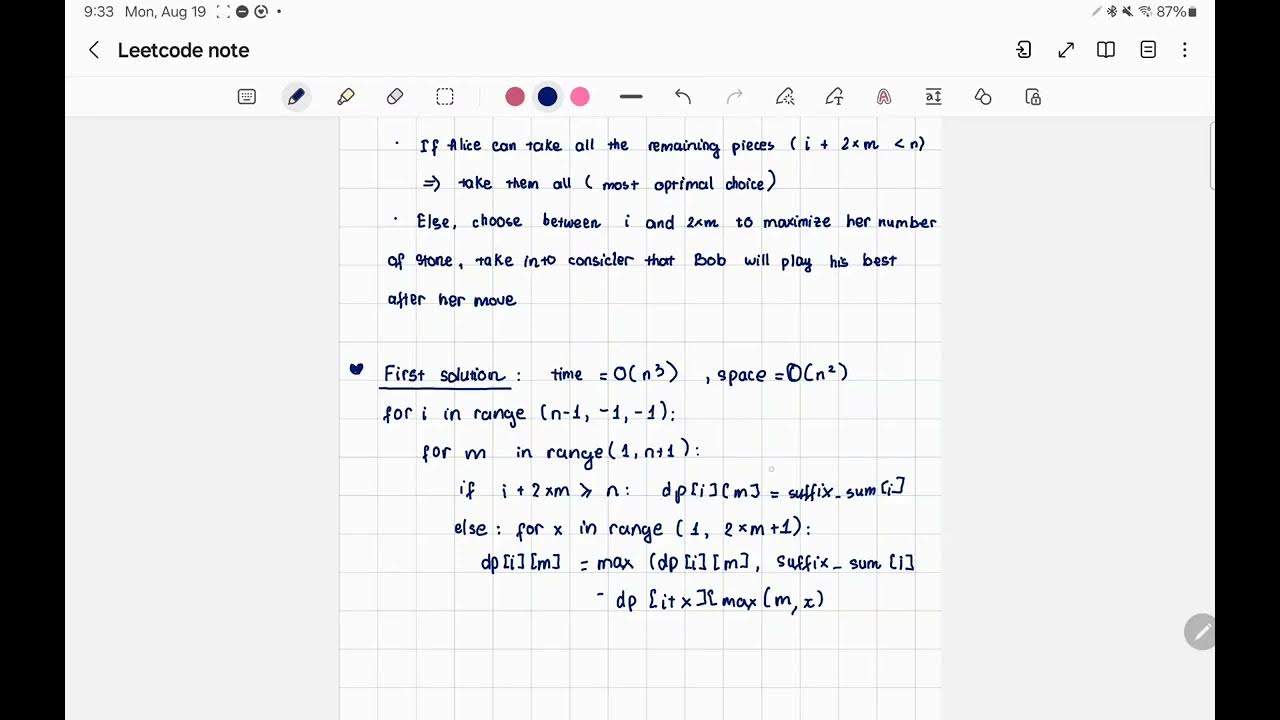 9:33 Mon, Aug 19
87%
Leetcode note
· If Alice can take all the remaining pieces ( i + 2×m < n)
⇒ take them all ( most optimal choice)
· Else, choose between i and 2×m to maximize her number
of stone, take into consider that Bob will play his best
after her move
First solution : time = O(n³) , space = O(n²)
for i in range (n-1, -1, -1):
for m in range(1, n+1):
if i + 2×m ≥ n: dp[i][m] = suffix_sum[i]
else: for x in range (1, 2×m+1):
dp[i][m] = max (dp[i][m], suffix_sum[i]
- dp [i+x][max(m,x)